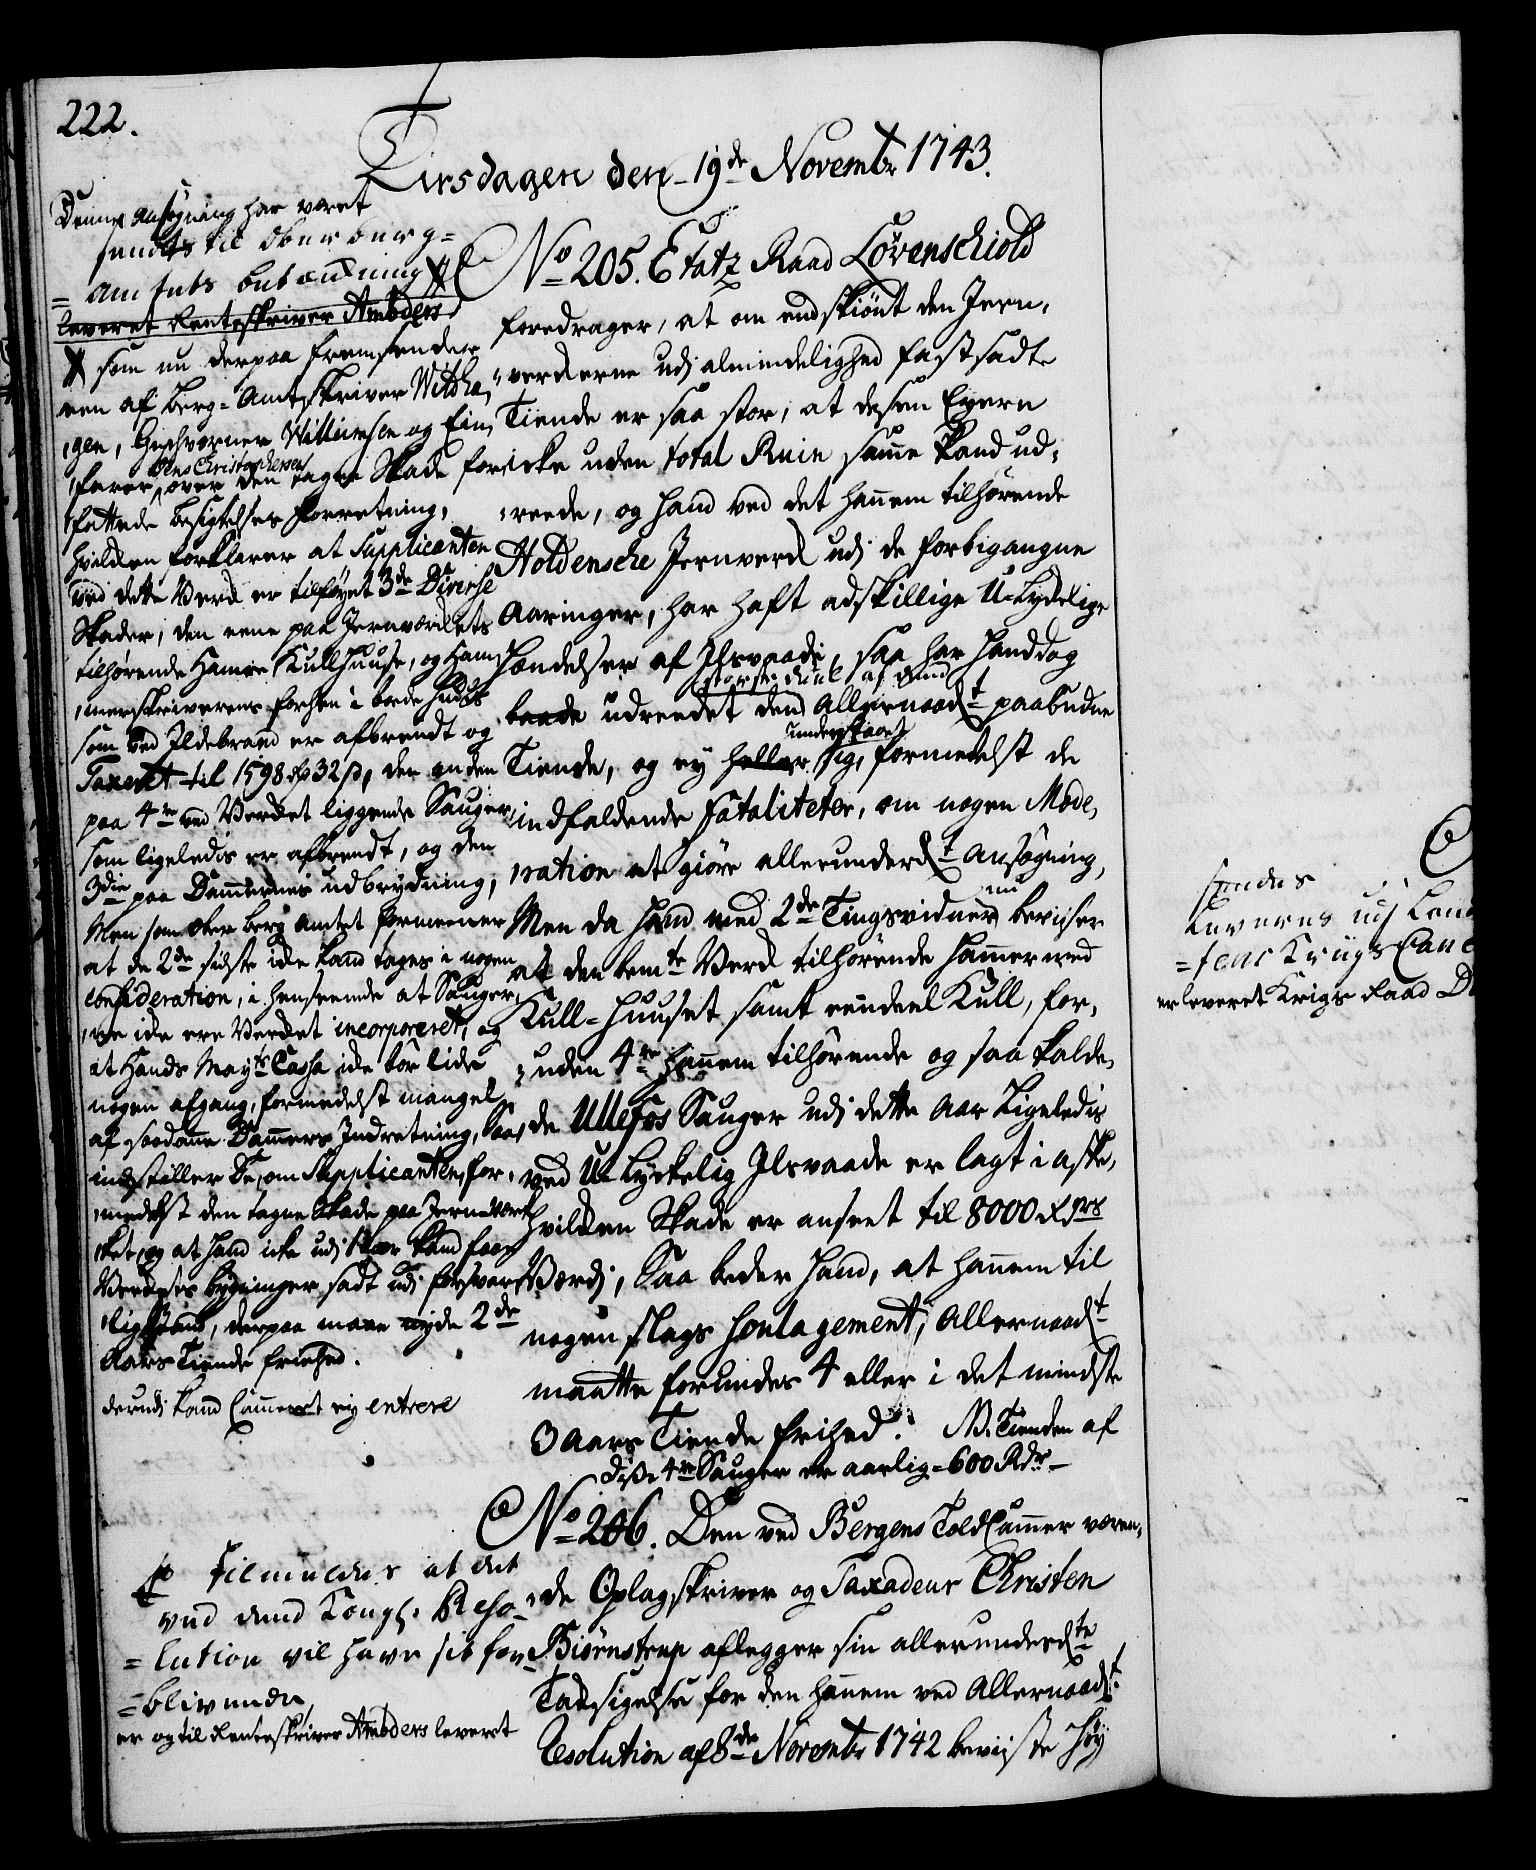 222.
Tirsdagen den 19de Novembr 1743.
Denne ansøgning har været
sendt til Oberberg=
=amtets betænkning
leveret Renteskriver Amböders
som nu derpaa fremsender
een af Berg=Amtskriver Witdha,
,gen, Geschworner Willumsen og
Ole Christophersen
over den tagne Skade for
fattede besigtelses forretning,
hvilken forklarer at Supplicanten
ved dette Verck er tilføyet 3de Diverse
Skader, den eene paa Jernværckets
tilhørende Hamer, Kullhuuse, og Ham
,merskriverens forhen i boede huus
som ved Ildebrand er afbrendt og
Taxeret til 1598 rdr 32 s, den anden
paa 4re ved Verdet liggende Sauger,
som ligeledis er afbrendt, og den
3die paa Dammernes udbrydning,
Men som Ober Berg Amtet formener
at de 2de sidste icke kand tages i nogen
consideration, i henseende at Sauger,
,ne icke ere Verdet incorporeret, og
at Hands Mayts Cassa icke bør lide
nogen afgang, formedelst mangel
af saadane Dammers Indretning, Saa
indstiller De, om Supplicanten, for,
,medelst den tagne Skade paa Jernvær
,ket, og at hand icke udj kand faae
Verckets bygninger sadt udj forsvar
,lig Stand, derpaa maae nyde 2de
Aars Tiende friehed.
derudj kand Cameret ey entrere
No 205. Etatz Raad Lövenschiold
foredrager, at om endskiönt den Jern,
,verckerne udj almindelighed fastsadte
Tiende er saa stor, at dessen Eyere
icke uden total Ruin same kand ud,
,reede, og hand ved det hannem tilhörende
Holdensche Jernverck udj de forbigangne
Aaringer, har haft adskillige U-Lyckelige
Hændelser af Ilsvaade, saa har hand dog
største deel af dend
baade udreedet den Allernaadt paabudne
understaaet
Tiende, og ey heller sig, formedelst de
indfaldende Fataliteter, om nogen Mode,
,ration at giöre allerunderdt ansögning,
nu
Men da hand med 2de Tingsvidner beviser
at den bemte Verck tilhörende Hamer med
Kull-Huuset samt eendeel Kull, for,
,uden 4re hannem tilhörende og saa kalde,
,de Ullefos Sauger udj dette Aar Ligeledis
ved U-Lyckelig Ilsvaade er lagt i aske,
hvilken Skade er anseet til 8000 Rdrs
Værdj, Saa beder hand, at hannem til
nogen slags Soulagement, Allernaadt
maatte forundes 4 eller i det mindste
3 Aars Tiende frihed. NB. Tienden af
disse 4re Sauger er aarlig = 600 Rdr
No 206. Den ved Bergens Told Camer væren,
,de Oplagskriver og Taxadeur Christen
Biörnstrup aflegger sin allerunderdte
Tacksigelse for den hannem ved Allernaadt
Resolution af 8de Novembr 1742 beviiste Höy
Tilmeldes at det
ved dend Kongl. Reso-
=lution vil have sit for-
=blivende,
er og til Renteskriver Amböders leveret
sendes
Leveres udj Land
=tens Krigs Canc
er leveret Krigs Raad D